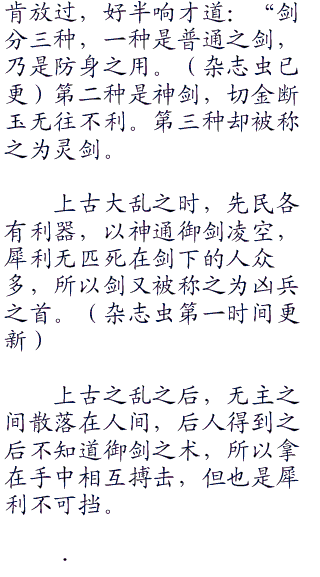 肯放过，好半响才道：“剑
分三种，一种是普通之剑，
乃是防身之用。（杂志虫已
更）第二种是神剑，切金断
玉无往不利。第三种却被称
之为灵剑。
上古大乱之时，先民各
有利器，以神通御剑凌空，
犀利无匹死在剑下的人众
多，所以剑又被称之为凶兵
之首。（杂志虫第一时间更
新）
上古之乱之后，无主之
间散落在人间，后人得到之
后不知道御剑之术，所以拿
在手中相互搏击，但也是犀
利不可挡。
.